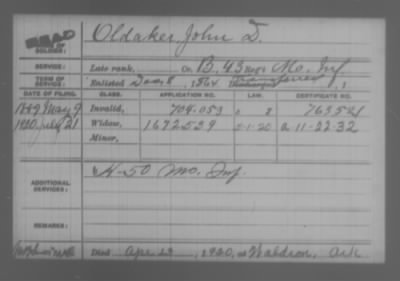 DEAD OF SOLDIER:
Oldaker, John D.
SERVICE: Late rank, Co. B, 43 Reg't Mo. Inf.
TERM OF SERVICE: Enlisted , 1864 Discharged , 1
DATE OF FILING. CLASS. APPLICATION NO. LAW. CERTIFICATE NO.
1889 May 9 Invalid, 704.053
1920 July 21 Widow, 1672539 5-1-20 11-22 32
Minor,
ADDITIONAL SERVICES: K-50 Mo. Inf.
REMARKS:
Died Apr 29, 1920, at Waldron, Ark